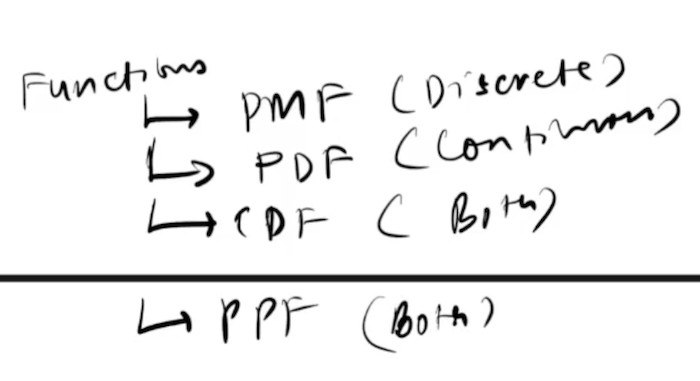 Functions
PMF (Discrete)
PDF (Continuous)
CDF (Both)
PPF (Both)